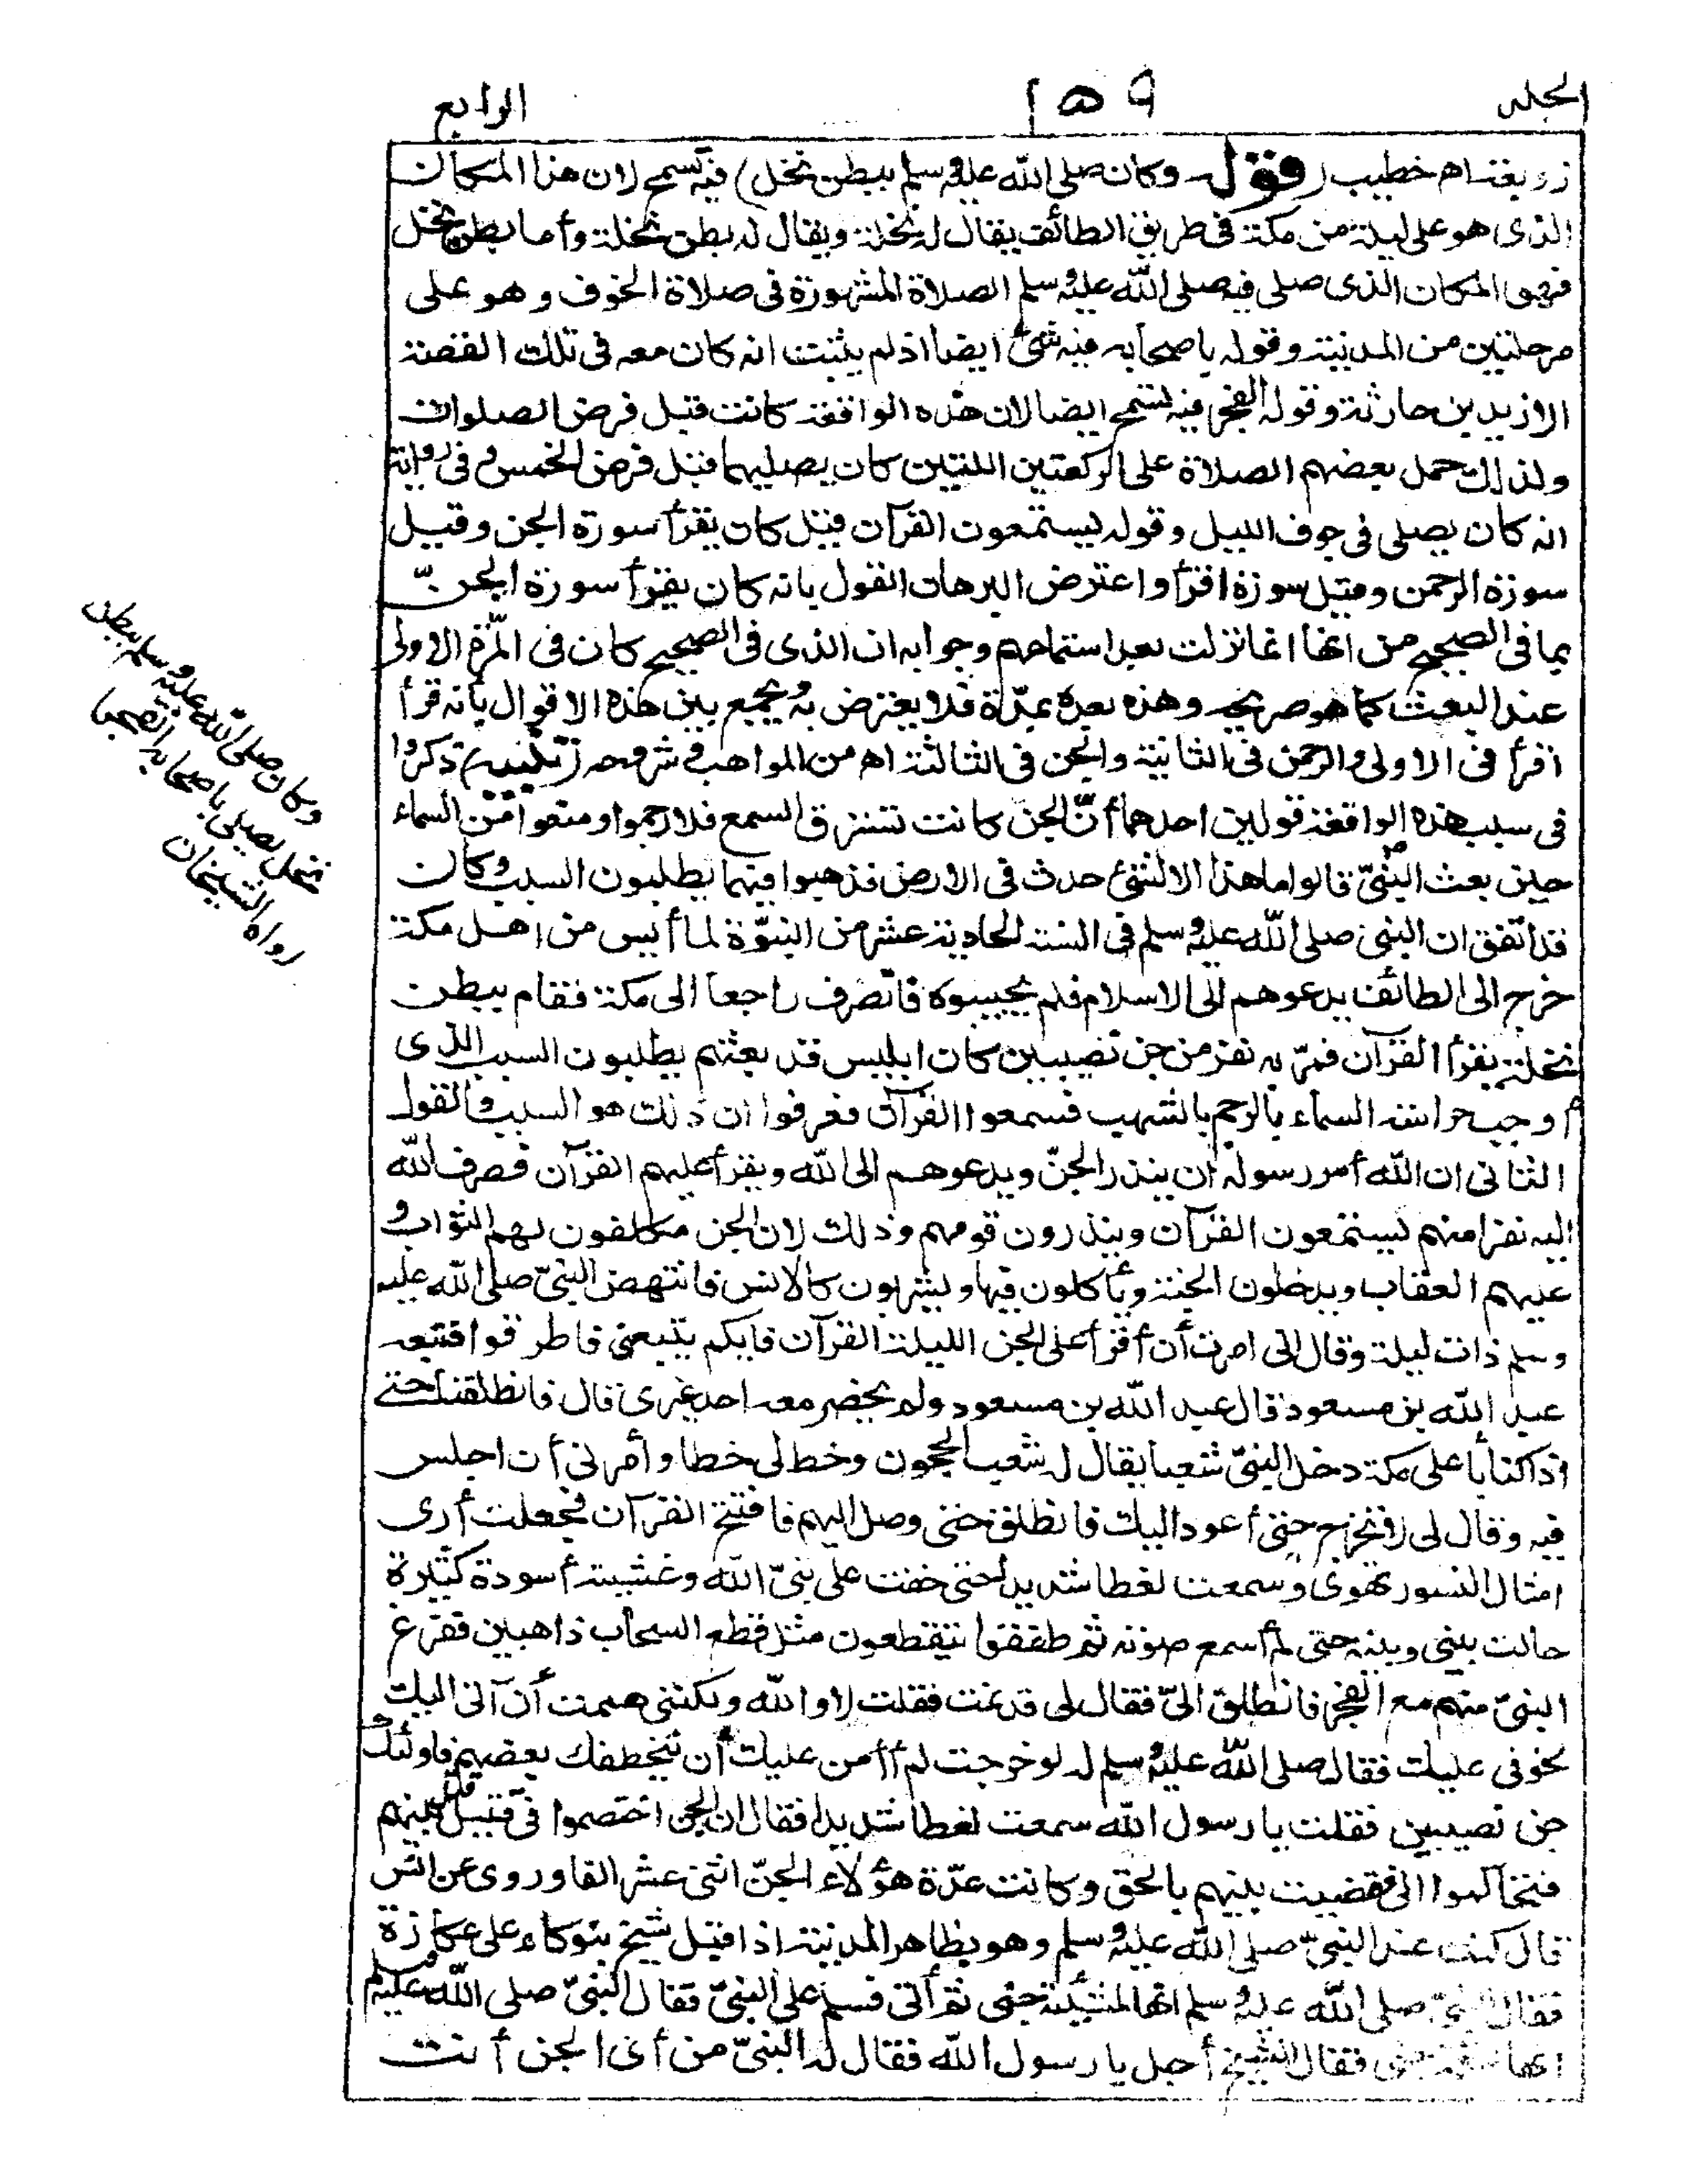 الجلد
١٥٩
الرابع
زوبعة اه خطيب (قوله وكان صلى الله عليه وسلم ببطن نخل) فيه تسمح لان هذا المكان
الذى هو على ليلة من مكة فى طريق الطائف يقال له نخلة ويقال له بطن نخلة وأما بطن نخل
فهو المكان الذى صلى فيه صلى الله عليه وسلم الصلاة المشهورة فى صلاة الخوف وهو على
مرحلتين من المدينة وقوله باصحابه فيه شئ أيضا اذ لم يثبت انه كان معه فى تلك القصة
الا زيد بن حارثة وقوله الفجر فيه تسمح ايضا لان هذه الواقعة كانت قبل فرض الصلوات
ولذلك حمل بعضهم الصلاة على الركعتين اللتين كان يصليهما قبل فرض الخمس وفى رواية
انه كان يصلى فى جوف الليل وقوله يستمعون القرآن قيل كان يقرأ سورة الجن وقيل
سورة الرحمن وقيل سورة اقرأ واعترض البرهان القول بانه كان يقرأ سورة الجن
بما فى الصحيح من انها انما نزلت بعد استماعهم وجوابه ان الذى فى الصحيح كان فى المرّة الاولى
عند البعث كما هو صريحه وهذه بعده بمدّة فلا يعترض به ويجمع بين هذه الاقوال بأنه قرأ
اقرأ فى الاولى والرحمن فى الثانية والجن فى الثالثة اه من المواهب وشرحه (تنبيه) ذكروا
فى سبب هذه الواقعة قولين احدهما أنّ الجن كانت تسترق السمع فلما رجموا ومنعوا من السماء
حين بعث النبىّ قالوا ما هذا الا لشئ حدث فى الارض فذهبوا فيها يطلبون السبب وكان
قد اتفق ان النبىّ صلى الله عليه وسلم فى السنة الحادية عشر من النبوّة لما أيس من اهل مكة
خرج الى الطائف يدعوهم الى الاسلام فلم يجيبوه فانصرف راجعا الى مكة فقام ببطن
نخلة يقرأ القرآن فمرّ به نفر من جن نصيبين كان ابليس قد بعثهم يطلبون السبب الذى
أوجب حراسة السماء بالرجم بالشهب فسمعوا القرآن فعرفوا ان ذلك هو السبب والقول
الثانى ان الله أمر رسوله أن ينذر الجنّ ويدعوهم الى الله ويقرأ عليهم القرآن فصرف الله
اليه نفرا منهم يستمعون القرآن وينذرون قومهم وذلك لان الجن مكلفون لهم الثواب و
عليهم العقاب ويدخلون الجنة ويأكلون فيها ويشربون كالانس فانتهض النبىّ صلى الله عليه
وسلم ذات ليلة وقال انى امرت أن أقرأ على الجن الليلة القرآن فايكم يتبعنى فاطرقوا فتبعه
عبد الله بن مسعود قال عبد الله بن مسعود ولم يحضر معه احد غيرى قال فانطلقنا حتى
اذا كنا بأعلى مكة دخل النبىّ شعبا يقال له شعب الحجون وخط لى خطا وأمرنى أن اجلس
فيه وقال لى لا تخرج حتى أعود اليك فانطلق حتى وصل اليهم فافتتح القرآن فجعلت أرى
امثال النسور تهوى وسمعت لغطا شديدا حتى خفت على نبىّ الله وغشيته أسودة كثيرة
حالت بينى وبينه حتى لم أسمع صوته ثم طفقوا يتقطعون مثل قطع السحاب ذاهبين ففرغ
النبىّ منهم مع الفجر فانطلق الىّ فقال لى قد نمت فقلت لا والله ولكننى هممت أن آتى اليك
لخوفى عليك فقال صلى الله عليه وسلم له لو خرجت لم أأمن عليك أن يتخطفك بعضهم فاولئك
جن نصيبين فقلت يا رسول الله سمعت لغطا شديدا فقال ان الجن اختصموا فى قتيل قتل بينهم
فتحاكموا الى فقضيت بينهم بالحق وكانت عدّة هؤلاء الجنّ اثنى عشر الفا وروى عن انس
قال كنت عند النبىّ صلى الله عليه وسلم وهو بظاهر المدينة اذا قبل شيخ يتوكاء على عكازة
فقال النبىّ صلى الله عليه وسلم انها لمشية جنى ثم أتى فسلم على النبىّ فقال النبىّ صلى الله عليه وسلم
انها جنى فقال الشيخ أجل يا رسول الله فقال له النبىّ من أى الجن أنت
وكان صلى الله عليه وسلم ببطن
نخل يصلى باصحابه الفجر
رواه الشيخان